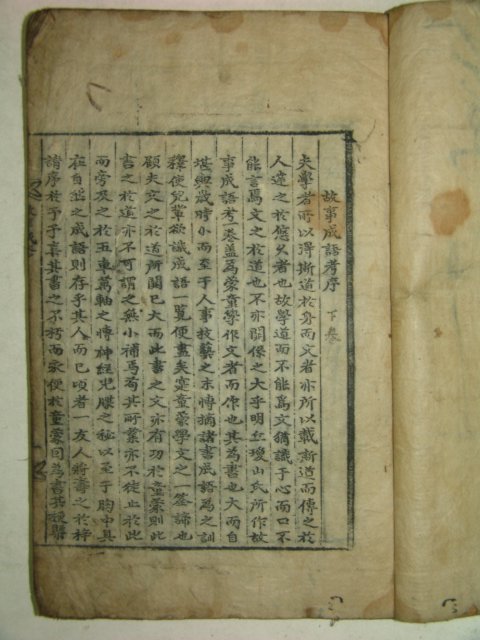 故事成語考序 下卷
夫學者所以得斯道於身而文者亦所以載斯道而傳之於
人遠之於悠久者也故學道而不能爲文猶識于心而口不
能言爲文之於道也不亦關係之大乎明丘瓊山氏所作故
事成語考卷盖爲蒙童學作文者而作也其爲書也大而自
堪輿歲時小而至于人事技藝之末博摘諸書成語爲之訓
釋使兒輩欲識成語一覧便盡矣寔童蒙學文之一筌蹄也
顧夫文之於道所關已大而此書之文亦有功於童蒙則此
書之於道亦不可謂之無小補焉有其所繫亦不徒止於此
而旁及之於五車萬軸之博神經兒牒之秘以至于胸中具
在自然之成語則存乎其人而已頃者一友人將壽之於梓
請序於予予喜其書之不朽而永便於童蒙因爲書其梗槩